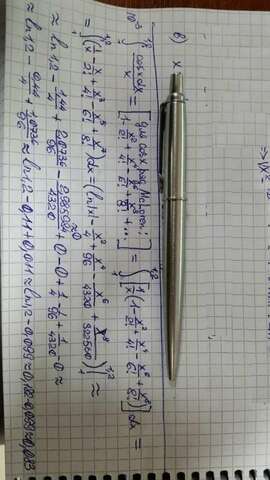 ⇒ |x²
б) x
10⁻³ ∫₁^1,2 cosxdx/x = [для cosx ряд Маклорена: 1 - x²/2! + x⁴/4! - x⁶/6! + x⁸/8! + ...] = ∫₁^1,2 [1/x (1 - x²/2! + x⁴/4! - x⁶/6! + x⁸/8!)] dx =
= ∫₁^1,2 (1/x - x/2! + x³/4! - x⁵/6! + x⁷/8!) dx = (ln|x| - x²/4 + x⁴/96 - x⁶/4320 + x⁸/322560) |₁^1,2 ≈
≈ ln1,2 - 1,44/4 + 2,0736/96 - 2,985984/4320 + 0 - 0 + 1/4 - 1/96 + 1/4320 - 0 ≈
≈ ln1,2 - 0,44/4 + 1,0736/96 ≈ ln1,2 - 0,11 + 0,011 ≈ ln1,2 - 0,099 ≈ 0,182 - 0,099 ≈ 0,083